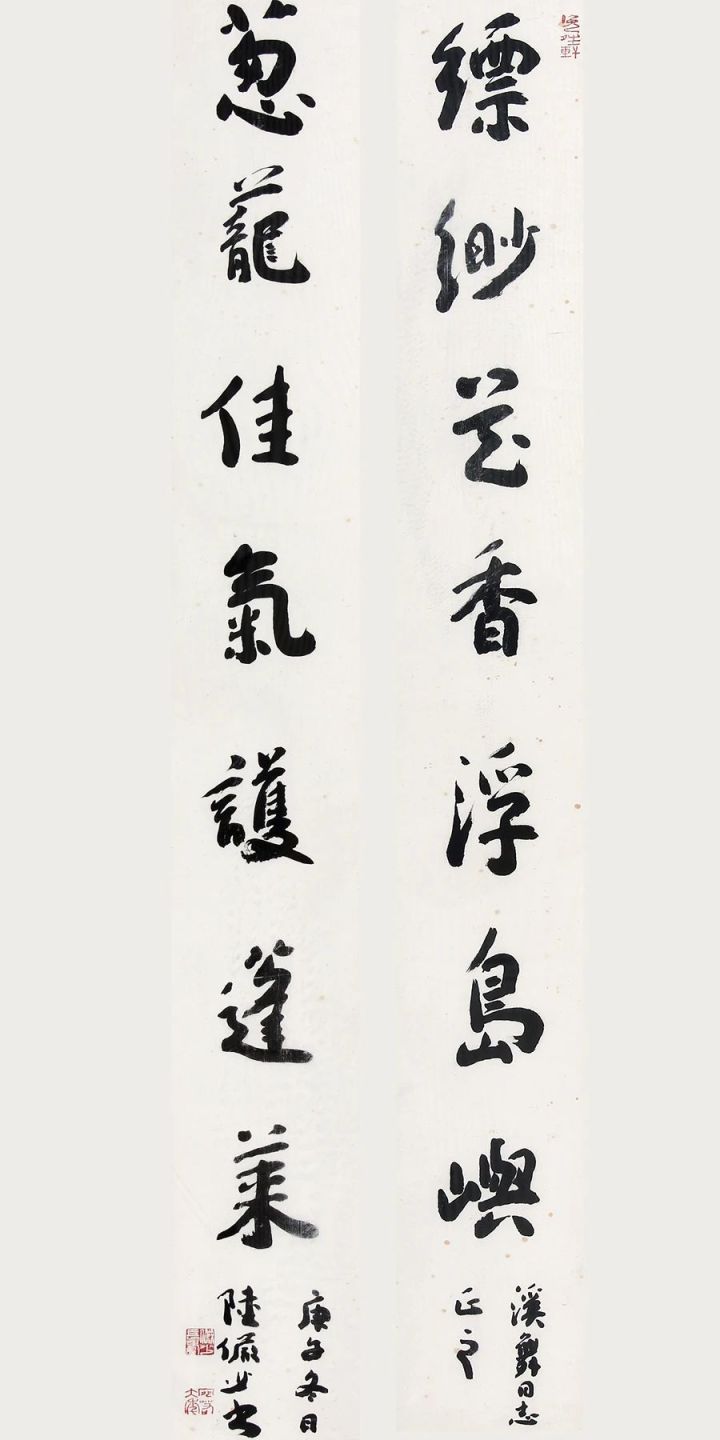 縹緲花香浮島嶼
溪舞同志
正之
蔥蘢佳氣護蓬萊
庚午冬日
陸儼少書